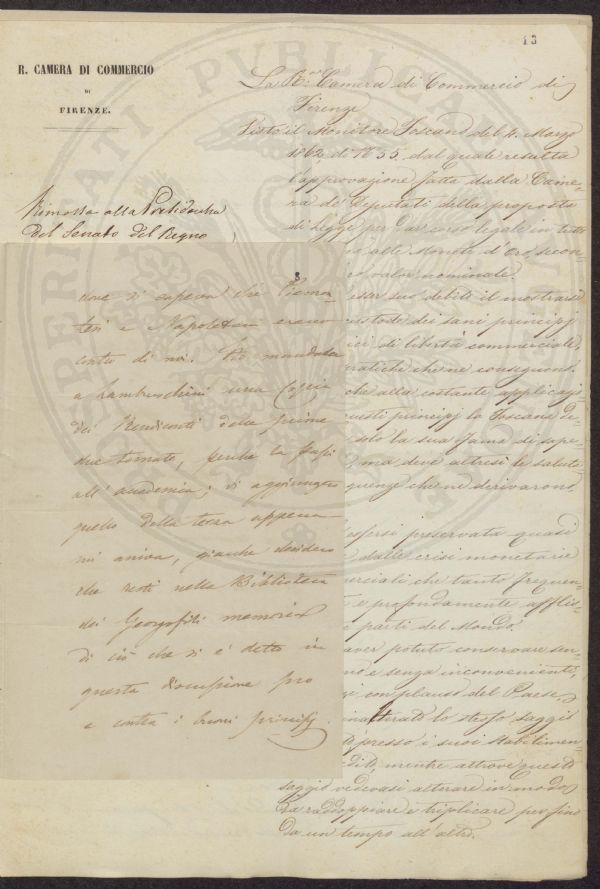 13
R. CAMERA DI COMMERCIO
DI
FIRENZE.
La R. Camera di Commercio di
Firenze
Visto il Monitore Toscano del 4. Marzo
1862. di N.° 55. dal quale resulta
l'approvazione fatta dalla Came=
ra de' Deputati della proposta
di legge per dar corso legale in tutto
alle Monete d'Oro, secon=
valor nominale.
esser suo debito il mostrarsi
custode dei sani principj
di libertà commerciale,
pratiche che ne conseguono.
che alla costante applicazi=
questi principj la Toscana de=
solo la sua fama di sape=
ma deve altresì le salute
che ne derivarono.
essersi preservata quasi
dalle crisi monetarie
che tanto frequen=
e profondamente afflis=
parti del Mondo.
aver potuto conservare sen=
e senza inconvenienti,
con plauso del Paese,
lo stesso saggio
presso i suoi Stabilimen=
mentre altrove questo
saggio vedevasi alterare in modo
da raddoppiare e triplicare per fino
da un tempo all'altro.
Rimessa alla Presidenza
del Senato del Regno
8
dove si sapeva che Piemon=
tesi e Napoletani erano
contro di noi. Ho mandato
a Lambruschini una Copia
dei Rendiconti delle prime
due tornate, perché la passi
all'accademia; vi aggiungerò
quello della terza appena
mi arriva, giacché desidero
che resti nella Biblioteca
dei Georgofili memoria
di ciò che si è detto in
questa discussione pro
e contra i buoni principj.